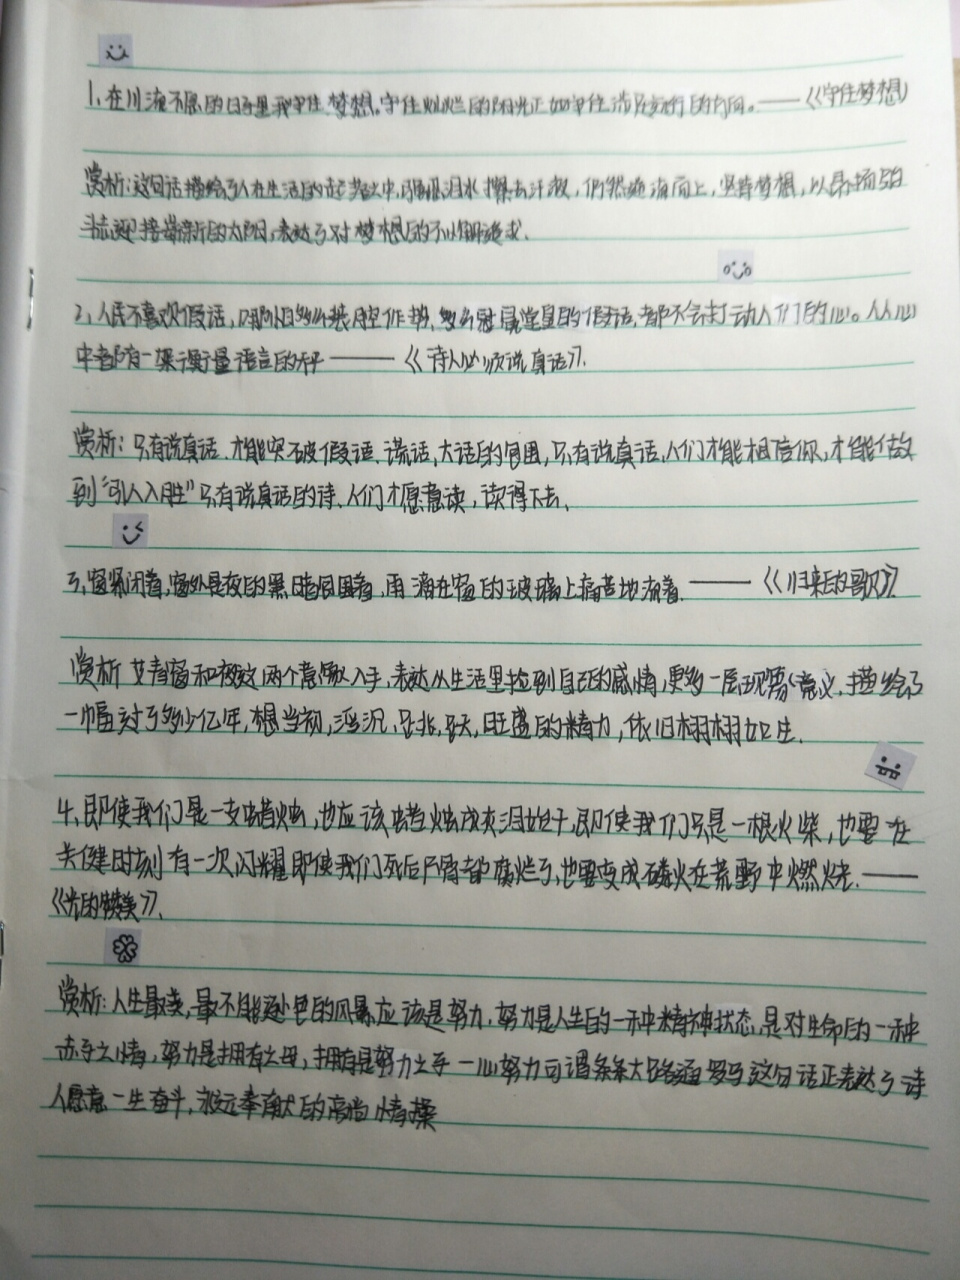 1、在川流不息的日子里我守住梦想。守住灿烂的阳光正如守住涉足方行的方向。——《守住梦想》
赏析:这句话描绘了人在生活的起落之中,强忍泪水擦去汗,仍然逆海而上,坚持梦想,以昂扬的
斗志迎接崭新的太阳,表达了对梦想的不懈追求、
2、人民不喜欢假话,哪怕多么装腔作势,多么冠冕堂皇的假话,都不会打动人们的心。人人心
中都有一架衡量语言的秤——《诗人必须说真话》、
赏析:只有说真话、才能突破假话、谎话,大话的包围,只有说真话,人们才能相信你,才能做
到"引人入胜"只有说真话的诗、人们才愿意读,读得下去、
3、窗紧闭着,窗外是夜的黑暗包围着,雨滴在窗的玻璃上痛苦地流着、——《归来的歌》
赏析 艾青窗和夜这两个意象入手,表达从生活里捡到自己的感情,更多一层现实意义、描绘了
一幅过了多少亿年,想当初,旺盛的精力,依旧栩栩如生、
4、即使我们是一支蜡烛,也应该蜡烛成灰泪始干,即使我们只是一根火柴,也要在
关健时刻有一次闪耀即使我们死后尸骨都腐烂了,也要变成磷火在荒野中燃烧、——
《光的赞美》、
赏析:人生最美,最不能逊色的风景应该是努力、努力是人生的一种精神状态、是对生命的一种
赤子之情,努力是拥有之母,拥有是努力之子 一心努力可谓条条大路通罗马 这句话正表达了诗
人愿意一生奋斗,永远奉献的高尚情操